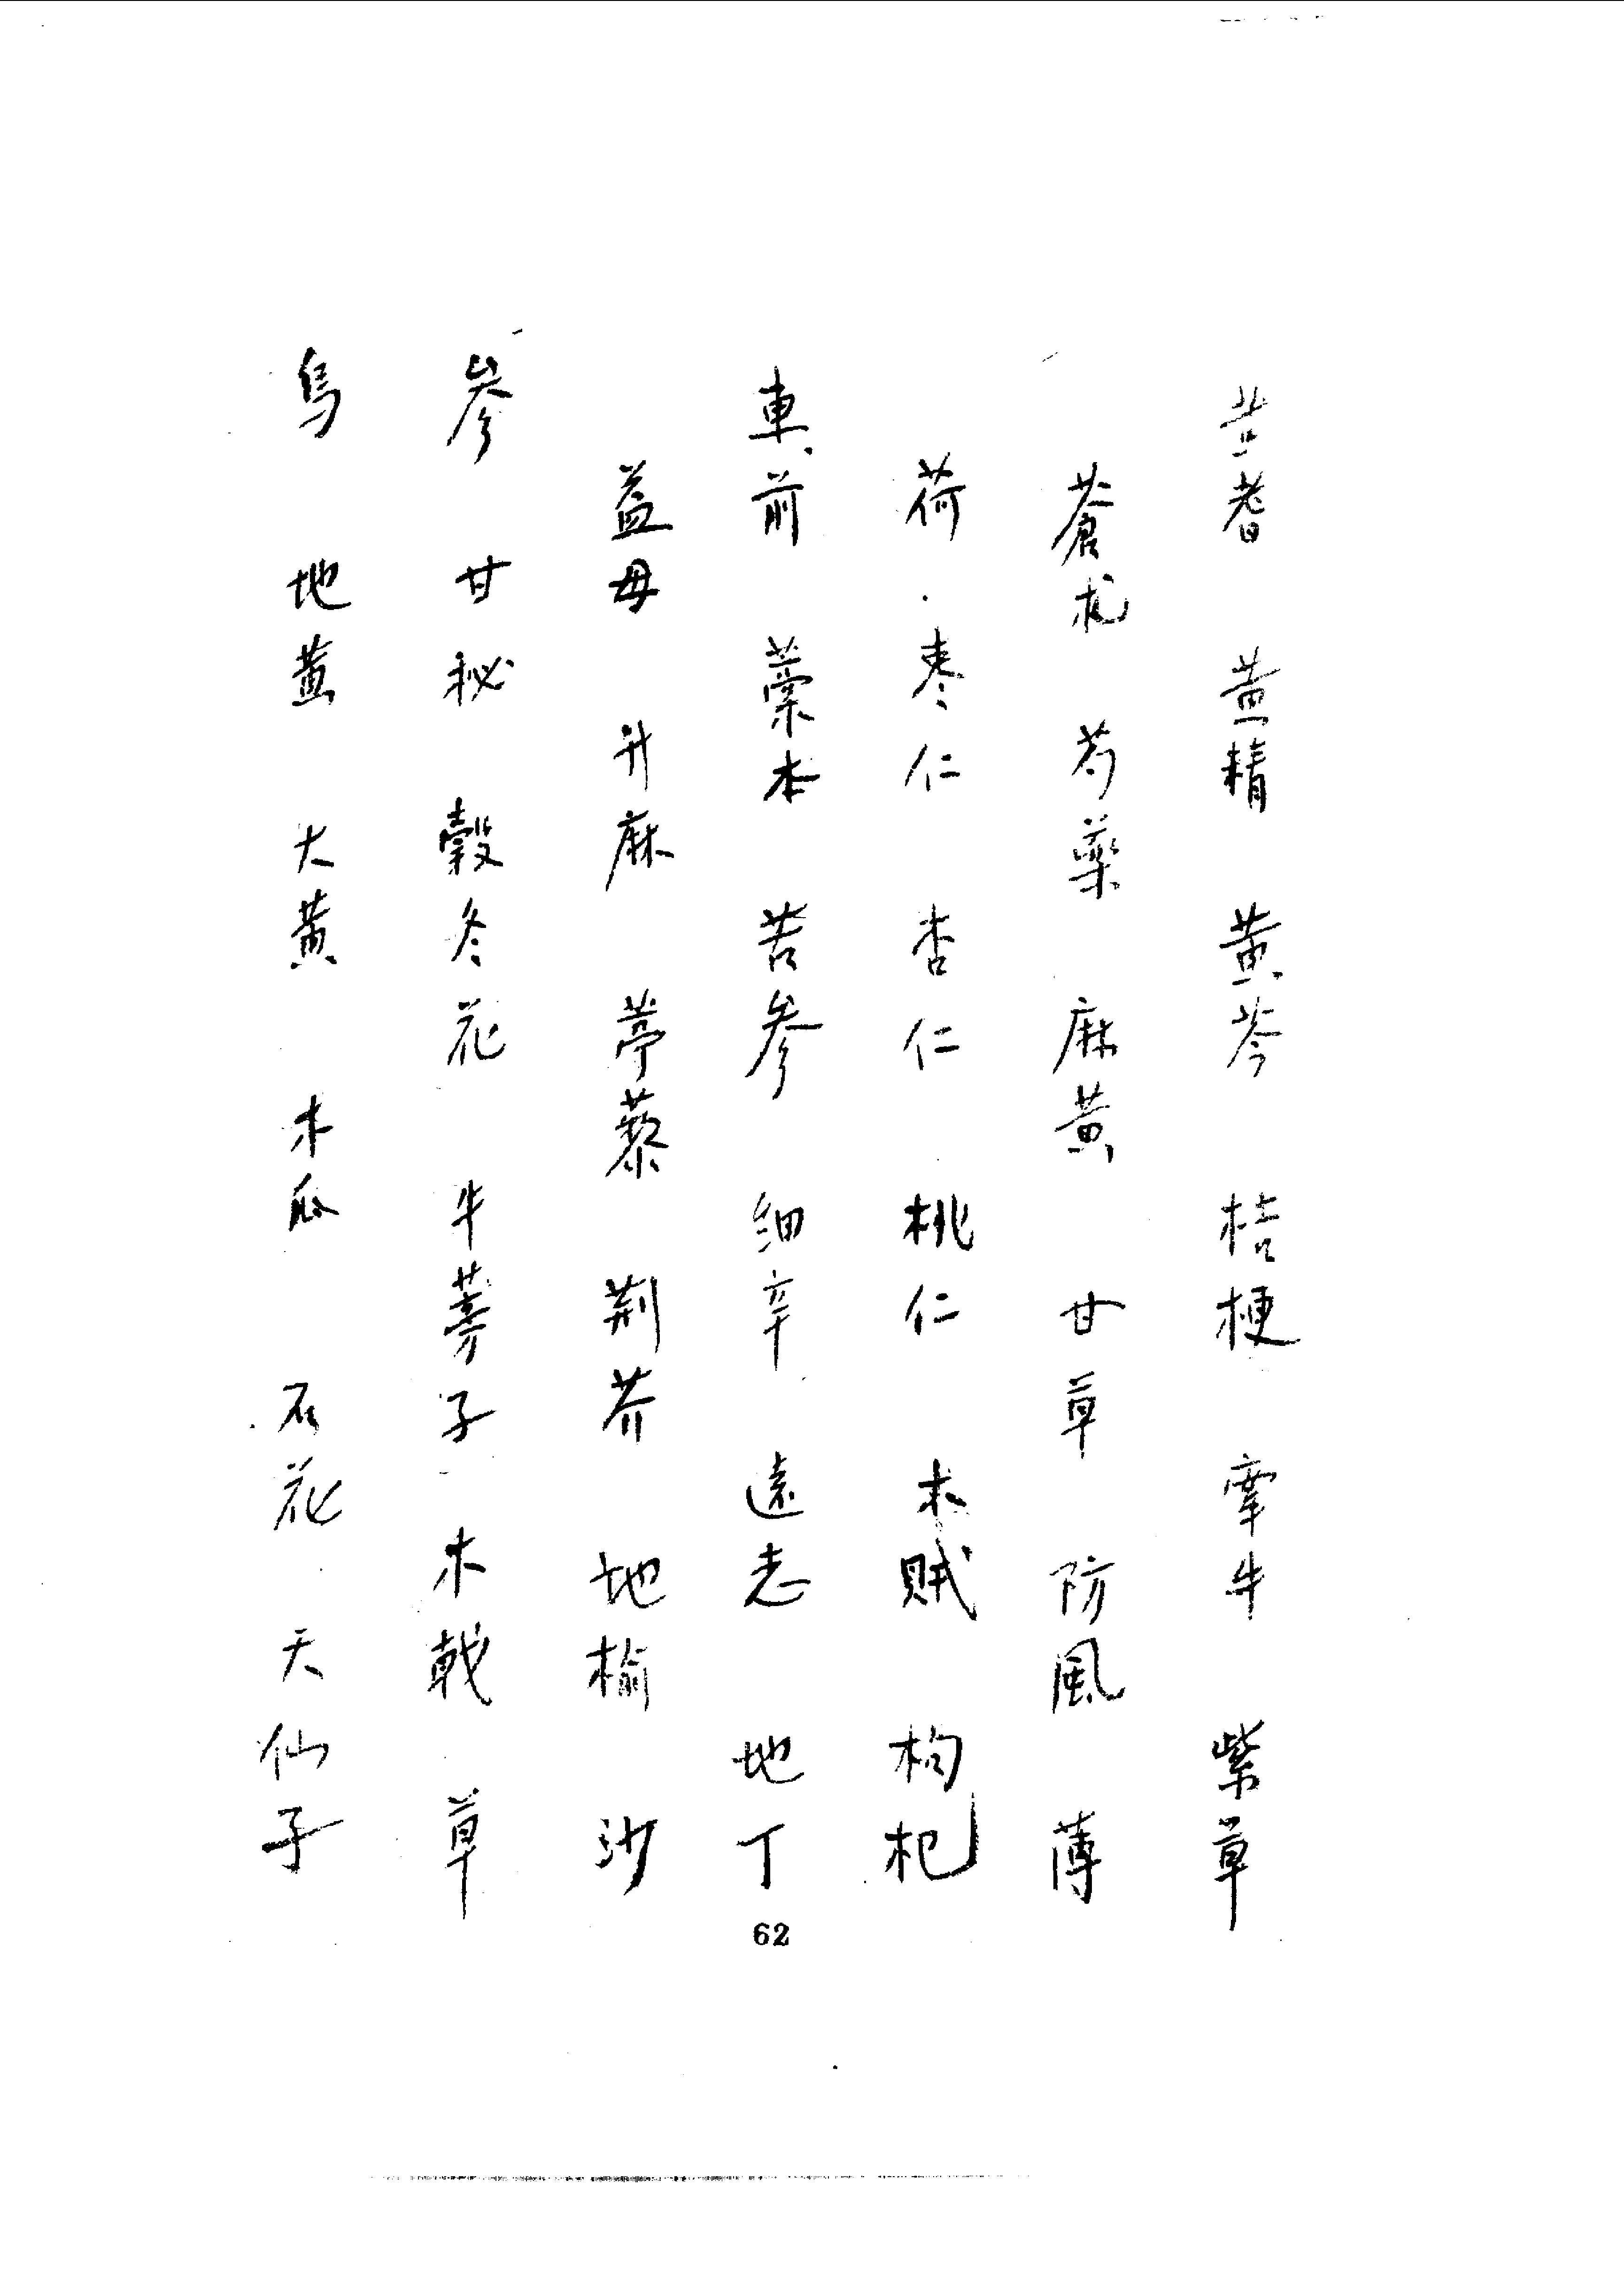 黃精 黃芩 桔梗 牽牛 紫草
蒼朮 芍藥 麻黃 甘草 防風 薄
荷 枣仁 杏仁 桃仁 木賊 枸杞
車前 藁本 苦參 細辛 遠志 地丁
益母 升麻 葶藜 荆芥 地榆 沙
參 甘秘 冬花 牛蒡子 木 草
烏 地黃 大黃 木瓜 石花 天仙子
62